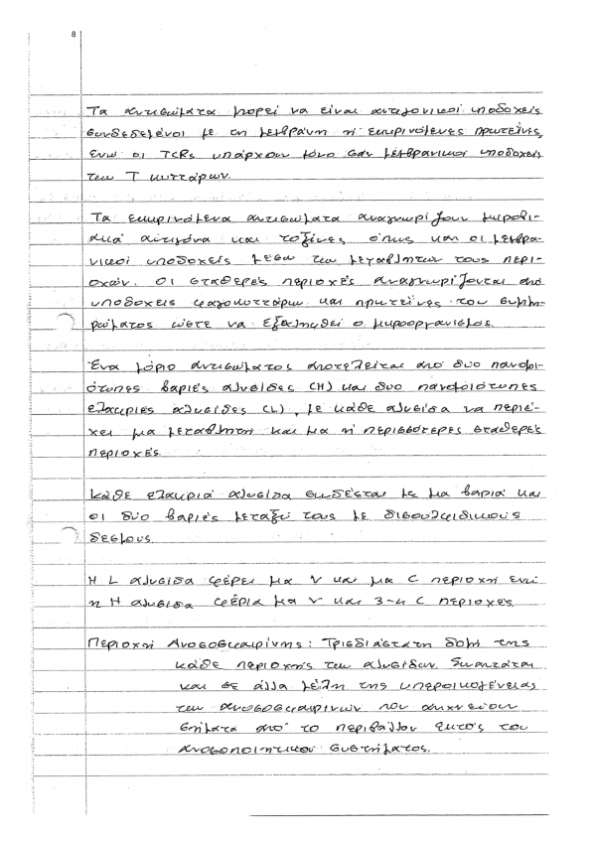 8
Τα αντισώματα μπορεί να είναι αντιγονικοί υποδοχείς
συνδεδεμένοι με τη μεμβράνη ή εκκρινόμενες πρωτεΐνες,
ενώ οι TCRs υπάρχουν μόνο σαν μεμβρανικοί υποδοχείς
των Τ κυττάρων.
Τα εκκρινόμενα αντισώματα αναγνωρίζουν μικροβι-
ακά αντιγόνα και τοξίνες όπως και οι μεμβρα-
νικοί υποδοχείς μέσω των μεταβλητών τους περι-
οχών. Οι σταθερές περιοχές αναγνωρίζονται από
υποδοχείς φαγοκυττάρων και πρωτεΐνες του συμπλη-
ρώματος ώστε να εξαλειφθεί ο μικροοργανισμός.
Ένα μόριο αντισώματος αποτελείται από δύο πανομοι-
ότυπες βαριές αλυσίδες (H) και δυο πανομοιότυπες
ελαφριές αλυσίδες (L), με κάθε αλυσίδα να περιέ-
χει μια μεταβλητή και μια ή περισσότερες σταθερές
περιοχές.
Κάθε ελαφριά αλυσίδα συνδέεται με μια βαριά και
οι δύο βαριές μεταξύ τους με δισουλφιδικούς
δεσμούς.
Η L αλυσίδα φέρει μια V και μια C περιοχή ενώ
η H αλυσίδα φέρει μια V και 3-4 C περιοχές
Περιοχή Ανοσοσφαιρίνης: Τρισδιάστατη δομή της
κάθε περιοχής των αλυσίδων. Συναντάται
και σε άλλα μέλη της υπεροικογένειας
των ανοσοσφαιρινών που ανιχνεύουν
σήματα από το περιβάλλον εκτός του
ανοσοποιητικού συστήματος.